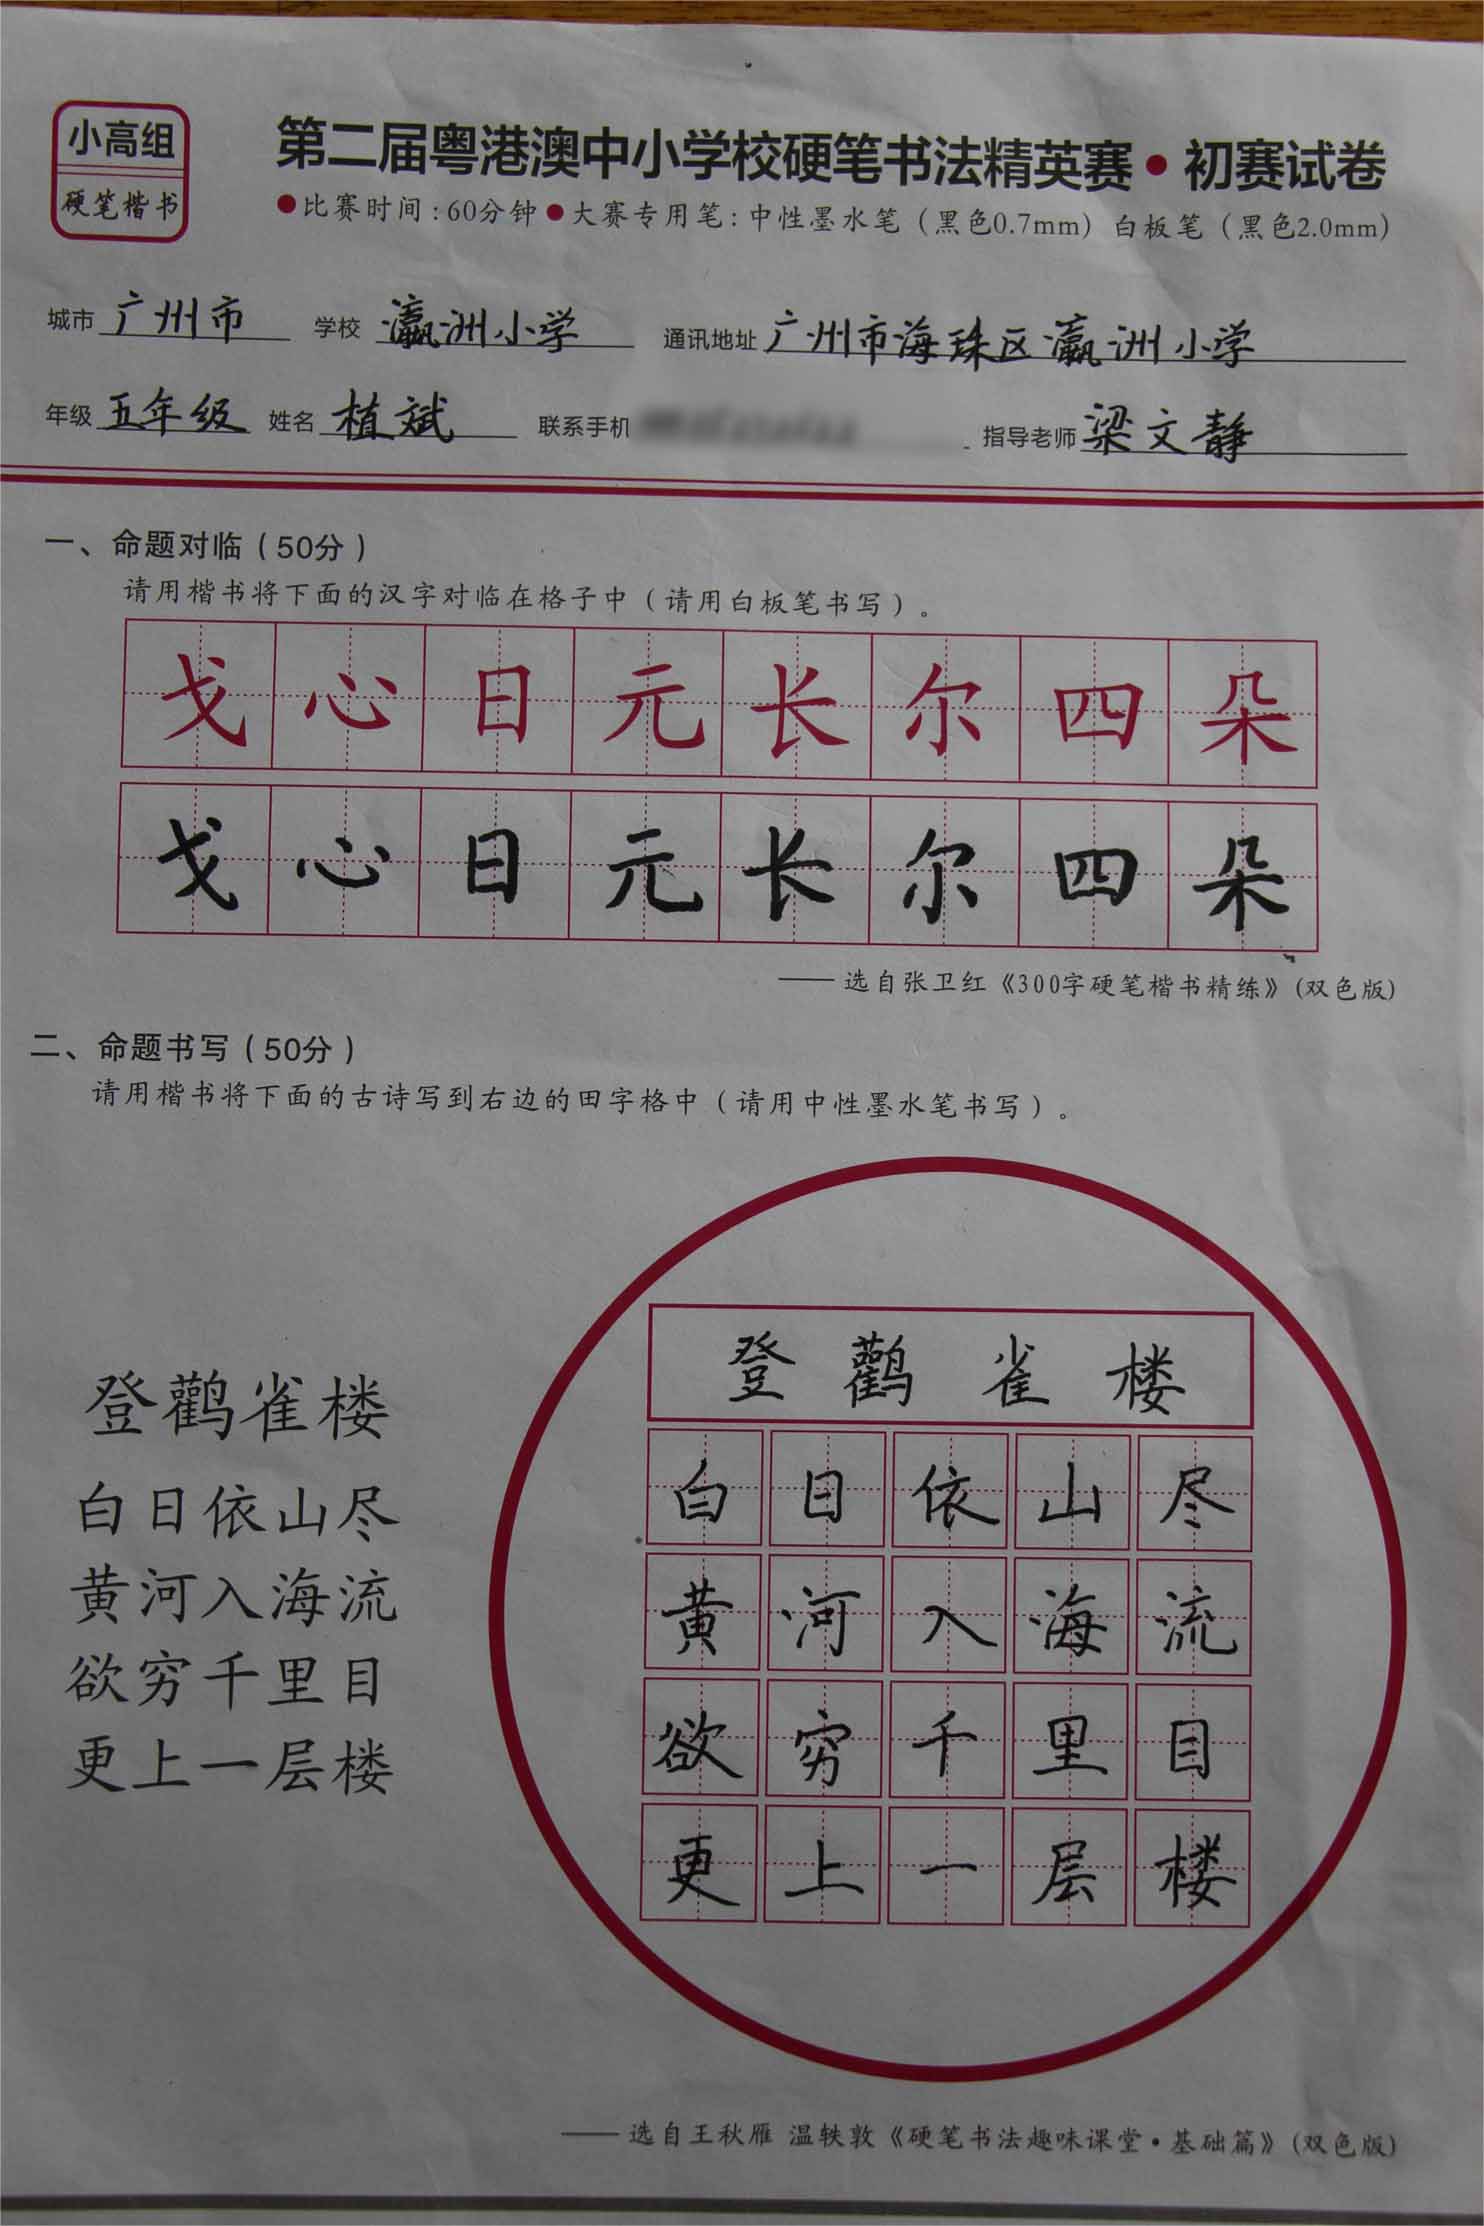 小高组
硬笔楷书
第二届粤港澳中小学校硬笔书法精英赛•初赛试卷
●比赛时间:60分钟●大赛专用笔:中性墨水笔（黑色0.7mm）白板笔（黑色2.0mm）
城市 广州市 学校 瀛洲小学 通讯地址 广州市海珠区瀛洲小学
年级 五年级 姓名 植斌 联系手机 指导老师 梁文静
一、命题对临（50分）
请用楷书将下面的汉字对临在格子中（请用白板笔书写）。
戈心日元长尔四朵
戈心日元长尔四朵
——选自张卫红《300字硬笔楷书精练》(双色版)
二、命题书写（50分）
请用楷书将下面的古诗写到右边的田字格中（请用中性墨水笔书写）。
登鹳雀楼
白日依山尽
黄河入海流
欲穷千里目
更上一层楼
登鹳雀楼
白日依山尽
黄河入海流
欲穷千里目
更上一层楼
——选自王秋雁 温轶敦《硬笔书法趣味课堂·基础篇》(双色版)